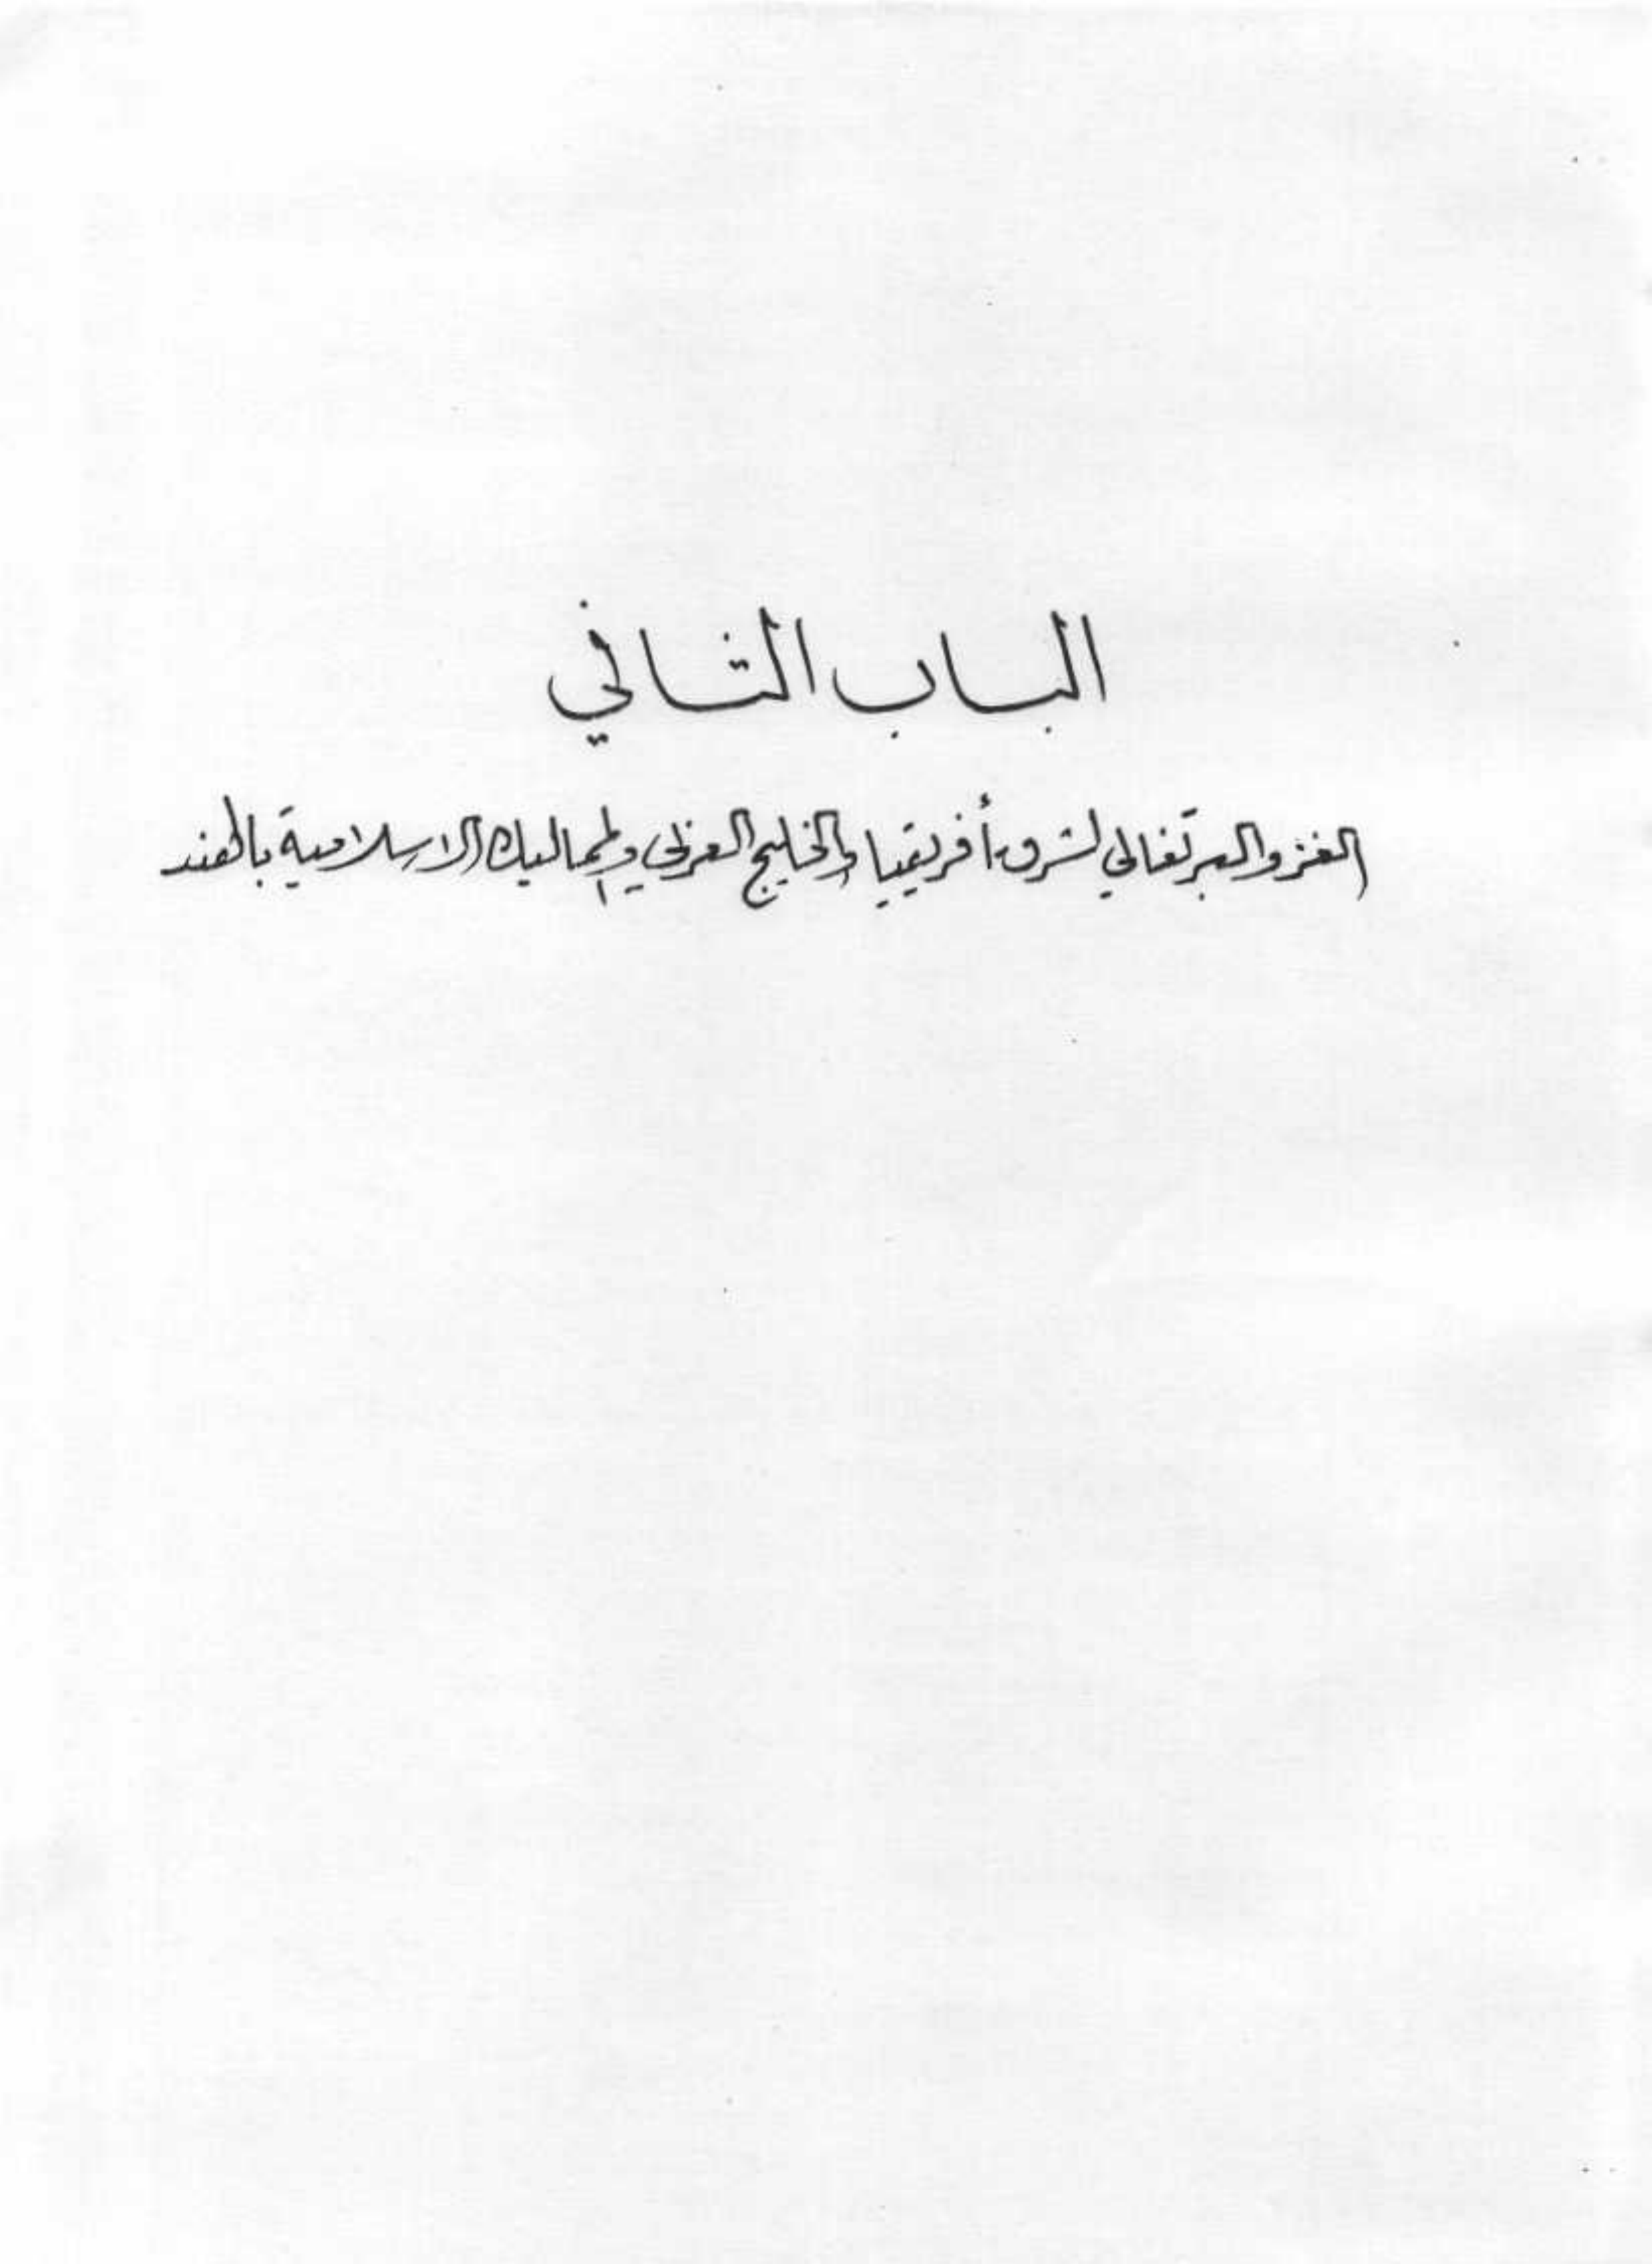 الباب الثاني
الغزو البرتغالي لشرق أفريقيا والخليج العربي والمماليك الاسلامية بالهند